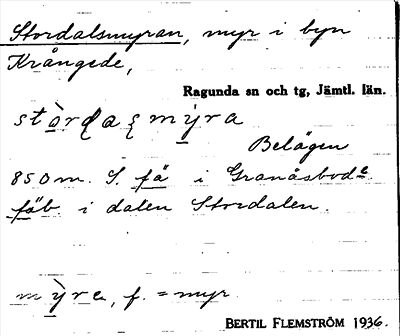 Stordalsmyran, myr i byn
Krångede,
Ragunda sn och tg, Jämtl. län.
stòrdaꞩmỳra
Belägen
850m. S. fä i Granåsbod
fäb. i dalen Stordalen.
mỳra, f. = myr
BERTIL FLEMSTRÖM 1936.